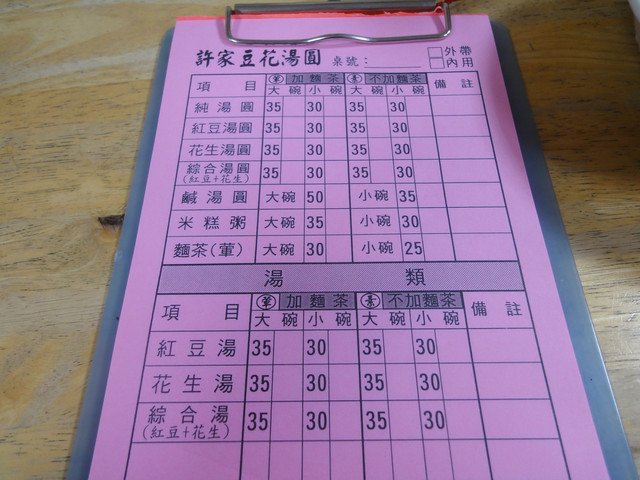 許家豆花湯圓 桌號： 外帶
內用
項目 葷 加麵茶 素 不加麵茶 備註
大碗 小碗 大碗 小碗
純湯圓 35 30 35 30
紅豆湯圓 35 30 35 30
花生湯圓 35 30 35 30
綜合湯圓 35 30 35 30
(紅豆+花生)
鹹湯圓 大碗 50 小碗 35
米糕粥 大碗 35 小碗 30
麵茶(葷) 大碗 30 小碗 25
湯類
項目 葷 加麵茶 素 不加麵茶 備註
大碗 小碗 大碗 小碗
紅豆湯 35 30 35 30
花生湯 35 30 35 30
綜合湯 35 30 35 30
(紅豆+花生)